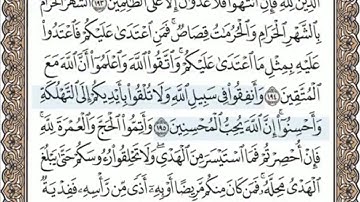 الدِّينُ لِلَّهِ فَإِنِ انتَهَوْا فَلَا عُدْوَانَ إِلَّا عَلَى الظَّالِمِينَ ١٩٣ الشَّهْرُ الْحَرَامُ
بِالشَّهْرِ الْحَرَامِ وَالْحُرُمَاتُ قِصَاصٌ ۚ فَمَنِ اعْتَدَىٰ عَلَيْكُمْ فَاعْتَدُوا
عَلَيْهِ بِمِثْلِ مَا اعْتَدَىٰ عَلَيْكُمْ ۚ وَاتَّقُوا اللَّهَ وَاعْلَمُوا أَنَّ اللَّهَ مَعَ
الْمُتَّقِينَ ١٩٤ وَأَنفِقُوا فِي سَبِيلِ اللَّهِ وَلَا تُلْقُوا بِأَيْدِيكُمْ إِلَى التَّهْلُكَةِ
وَأَحْسِنُوا ۛ إِنَّ اللَّهَ يُحِبُّ الْمُحْسِنِينَ ١٩٥ وَأَتِمُّوا الْحَجَّ وَالْعُمْرَةَ لِلَّهِ ۚ
فَإِنْ أُحْصِرْتُمْ فَمَا اسْتَيْسَرَ مِنَ الْهَدْيِ ۖ وَلَا تَحْلِقُوا رُءُوسَكُمْ حَتَّىٰ يَبْلُغَ
الْهَدْيُ مَحِلَّهُ ۚ فَمَن كَانَ مِنكُم مَّرِيضًا أَوْ بِهِ أَذًى مِّن رَّأْسِهِ فَفِدْيَةٌ